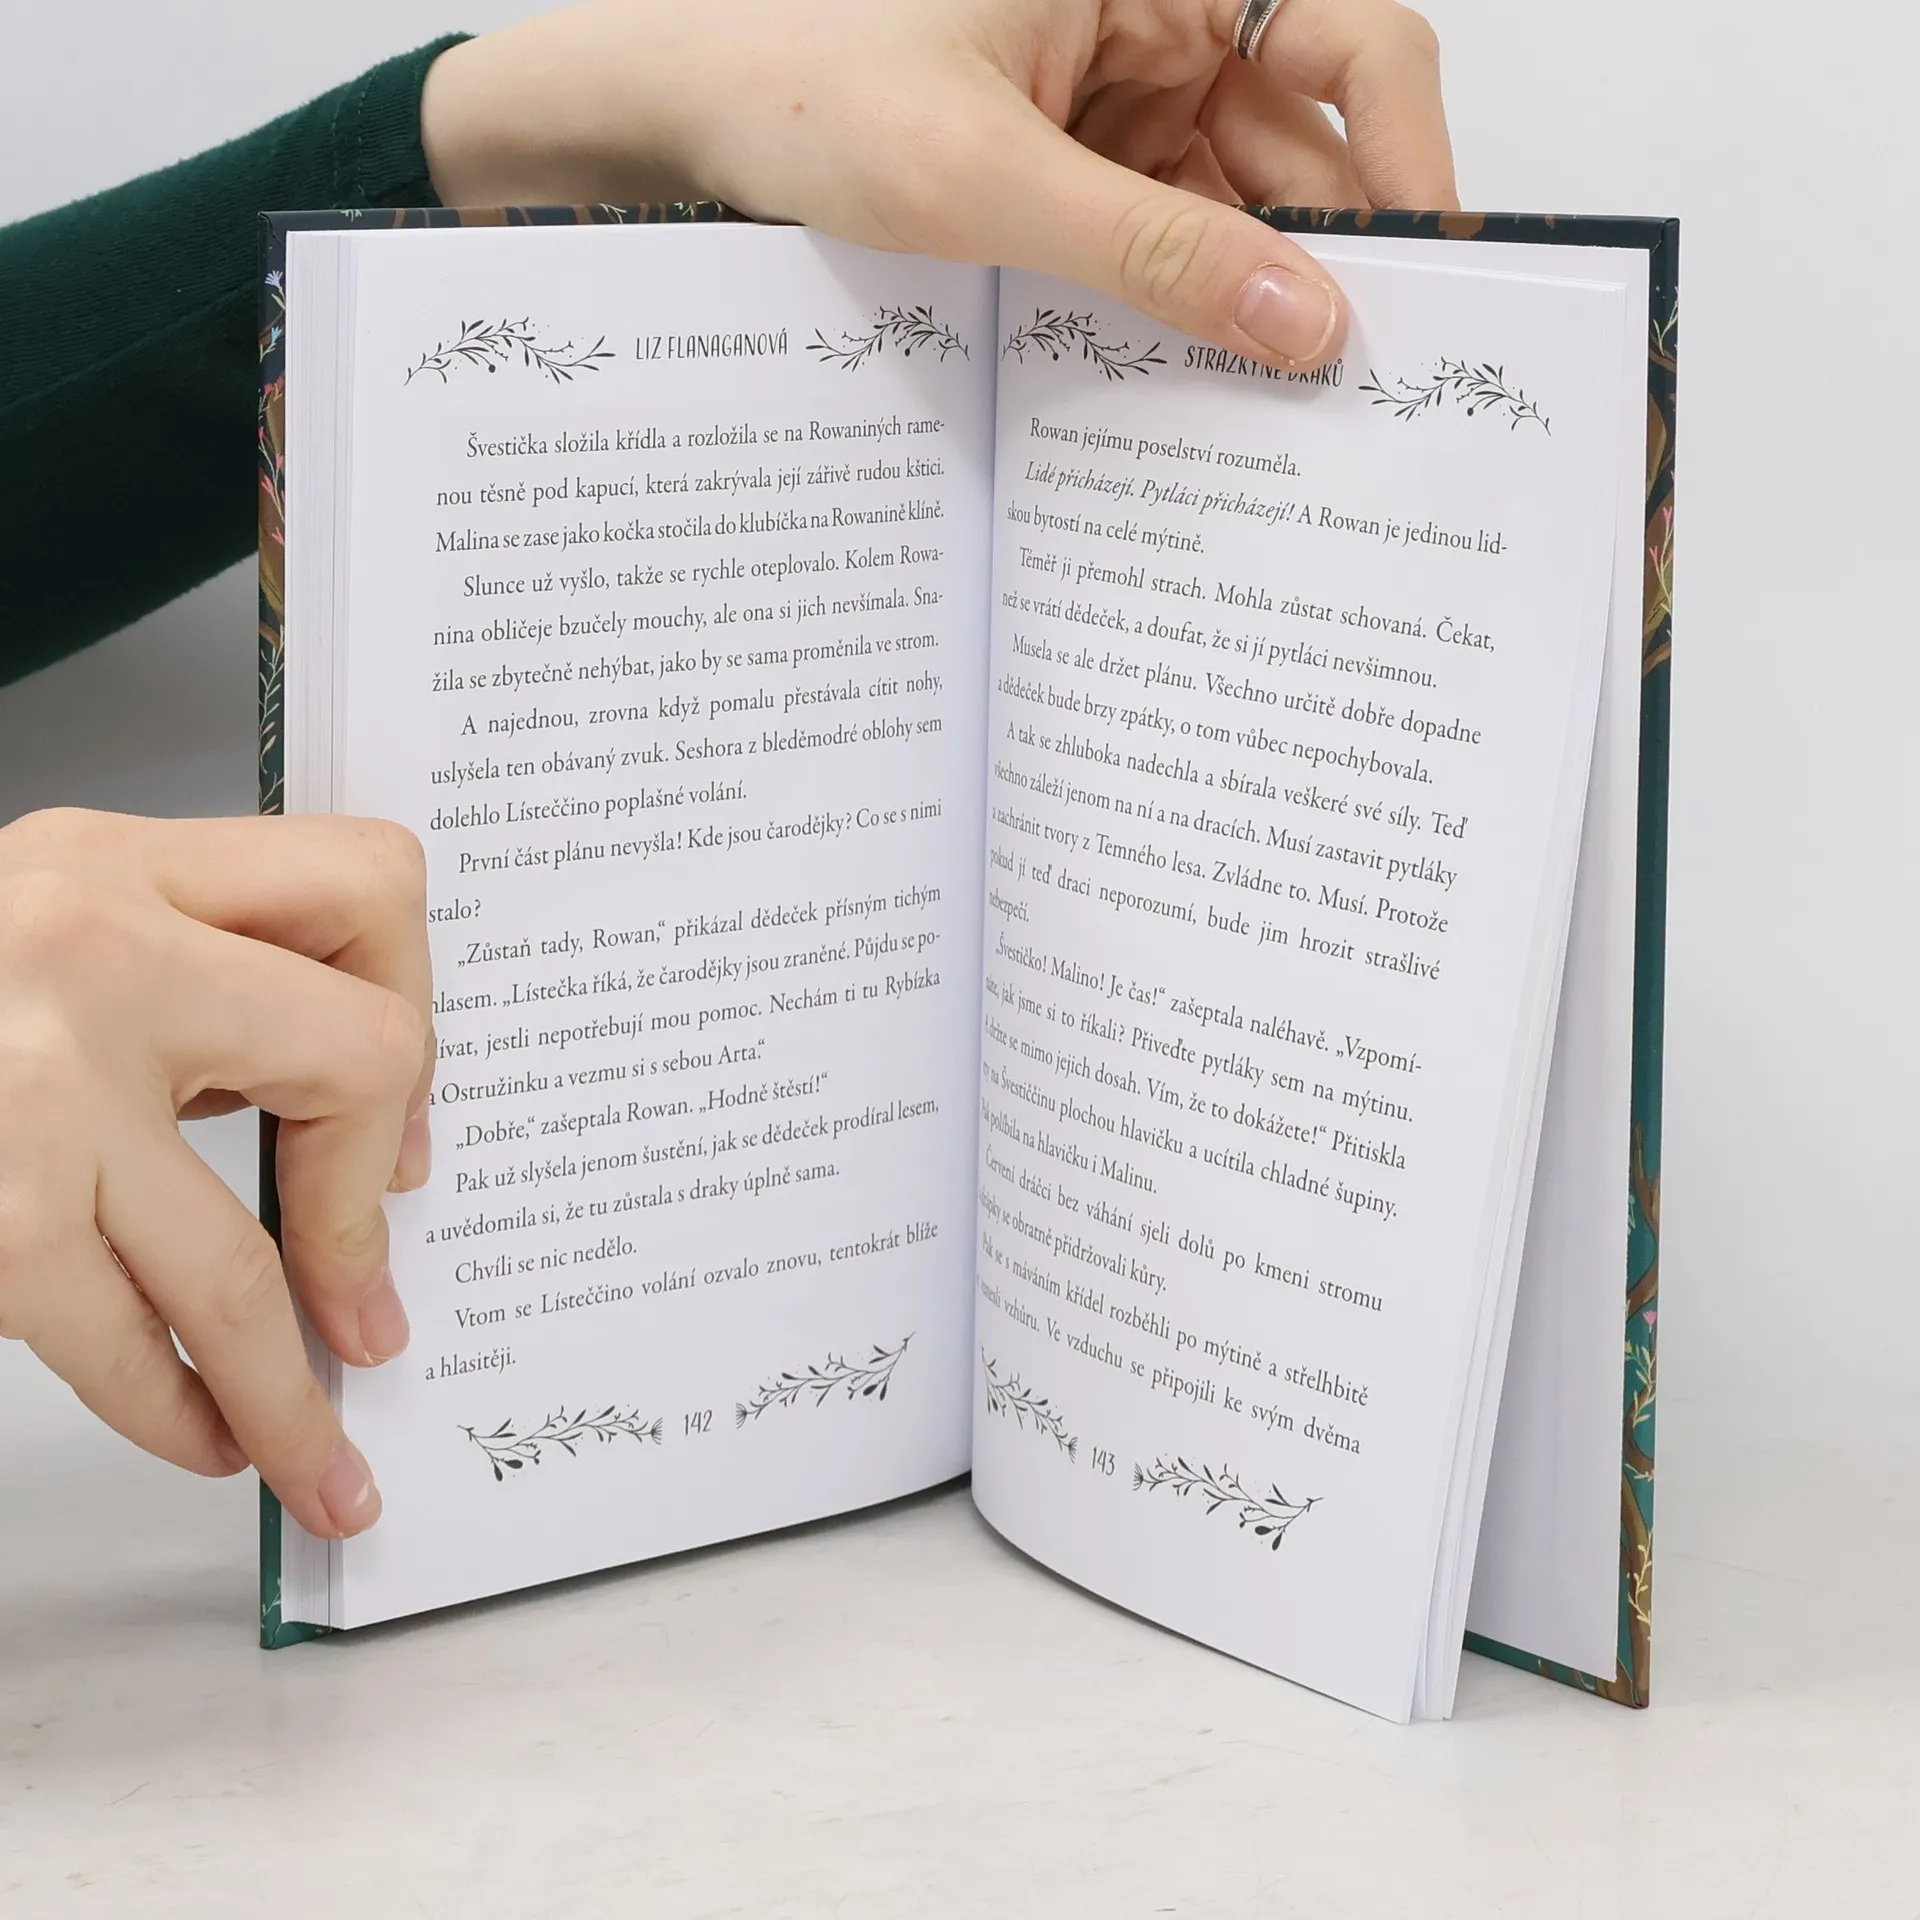 LIZ FLANAGANOVÁ
Švestička složila křídla a rozložila se na Rowaniných rame-
nou těsně pod kapucí, která zakrývala její zářivě rudou kštici.
Malina se zase jako kočka stočila do klubíčka na Rowanině klíně.
Slunce už vyšlo, takže se rychle oteplovalo. Kolem Rowa-
nina obličeje bzučely mouchy, ale ona si jich nevšímala. Sna-
žila se zbytečně nehýbat, jako by se sama proměnila ve strom.
A najednou, zrovna když pomalu přestávala cítit nohy,
uslyšela ten obávaný zvuk. Seshora z bleděmodré oblohy sem
dolehlo Lísteččino poplašné volání.
První část plánu nevyšla! Kde jsou čarodějky? Co se s nimi
stalo?
„Zůstaň tady, Rowan,“ přikázal dědeček přísným tichým
hlasem. „Lístečka říká, že čarodějky jsou zraněné. Půjdu se po-
ívat, jestli nepotřebují mou pomoc. Nechám ti tu Rybízka
a Ostružinku a vezmu si s sebou Arta.“
„Dobře,“ zašeptala Rowan. „Hodně štěstí!“
Pak už slyšela jenom šustění, jak se dědeček prodíral lesem,
a uvědomila si, že tu zůstala s draky úplně sama.
Chvíli se nic nedělo.
Vtom se Lísteččino volání ozvalo znovu, tentokrát blíže
a hlasitěji.
142
STRÁŽKYNĚ DRAKŮ
Rowan jejímu poselství rozuměla.
Lidé přicházejí. Pytláci přicházejí! A Rowan je jedinou lid-
skou bytostí na celé mýtině.
Téměř ji přemohl strach. Mohla zůstat schovaná. Čekat,
než se vrátí dědeček, a doufat, že si jí pytláci nevšimnou.
Musela se ale držet plánu. Všechno určitě dobře dopadne
a dědeček bude brzy zpátky, o tom vůbec nepochybovala.
A tak se zhluboka nadechla a sbírala veškeré své síly. Teď
všechno záleží jenom na ní a na dracích. Musí zastavit pytláky
a zachránit tvory z Temného lesa. Zvládne to. Musí. Protože
pokud jí teď draci neporozumí, bude jim hrozit strašlivé
nebezpečí.
„Švestičko! Malino! Je čas!“ zašeptala naléhavě. „Vzpomí-
náte, jak jsme si to říkali? Přiveďte pytláky sem na mýtinu.
A držte se mimo jejich dosah. Vím, že to dokážete!“ Přitiskla
na Švestiččinu plochou hlavičku a ucítila chladné šupiny.
Pak políbila na hlavičku i Malinu.
Červení dráčci bez váhání sjeli dolů po kmeni stromu
se obratně přidržovali kůry.
Pak se s máváním křídel rozběhli po mýtině a střelhbitě
vzhůru. Ve vzduchu se připojili ke svým dvěma
143